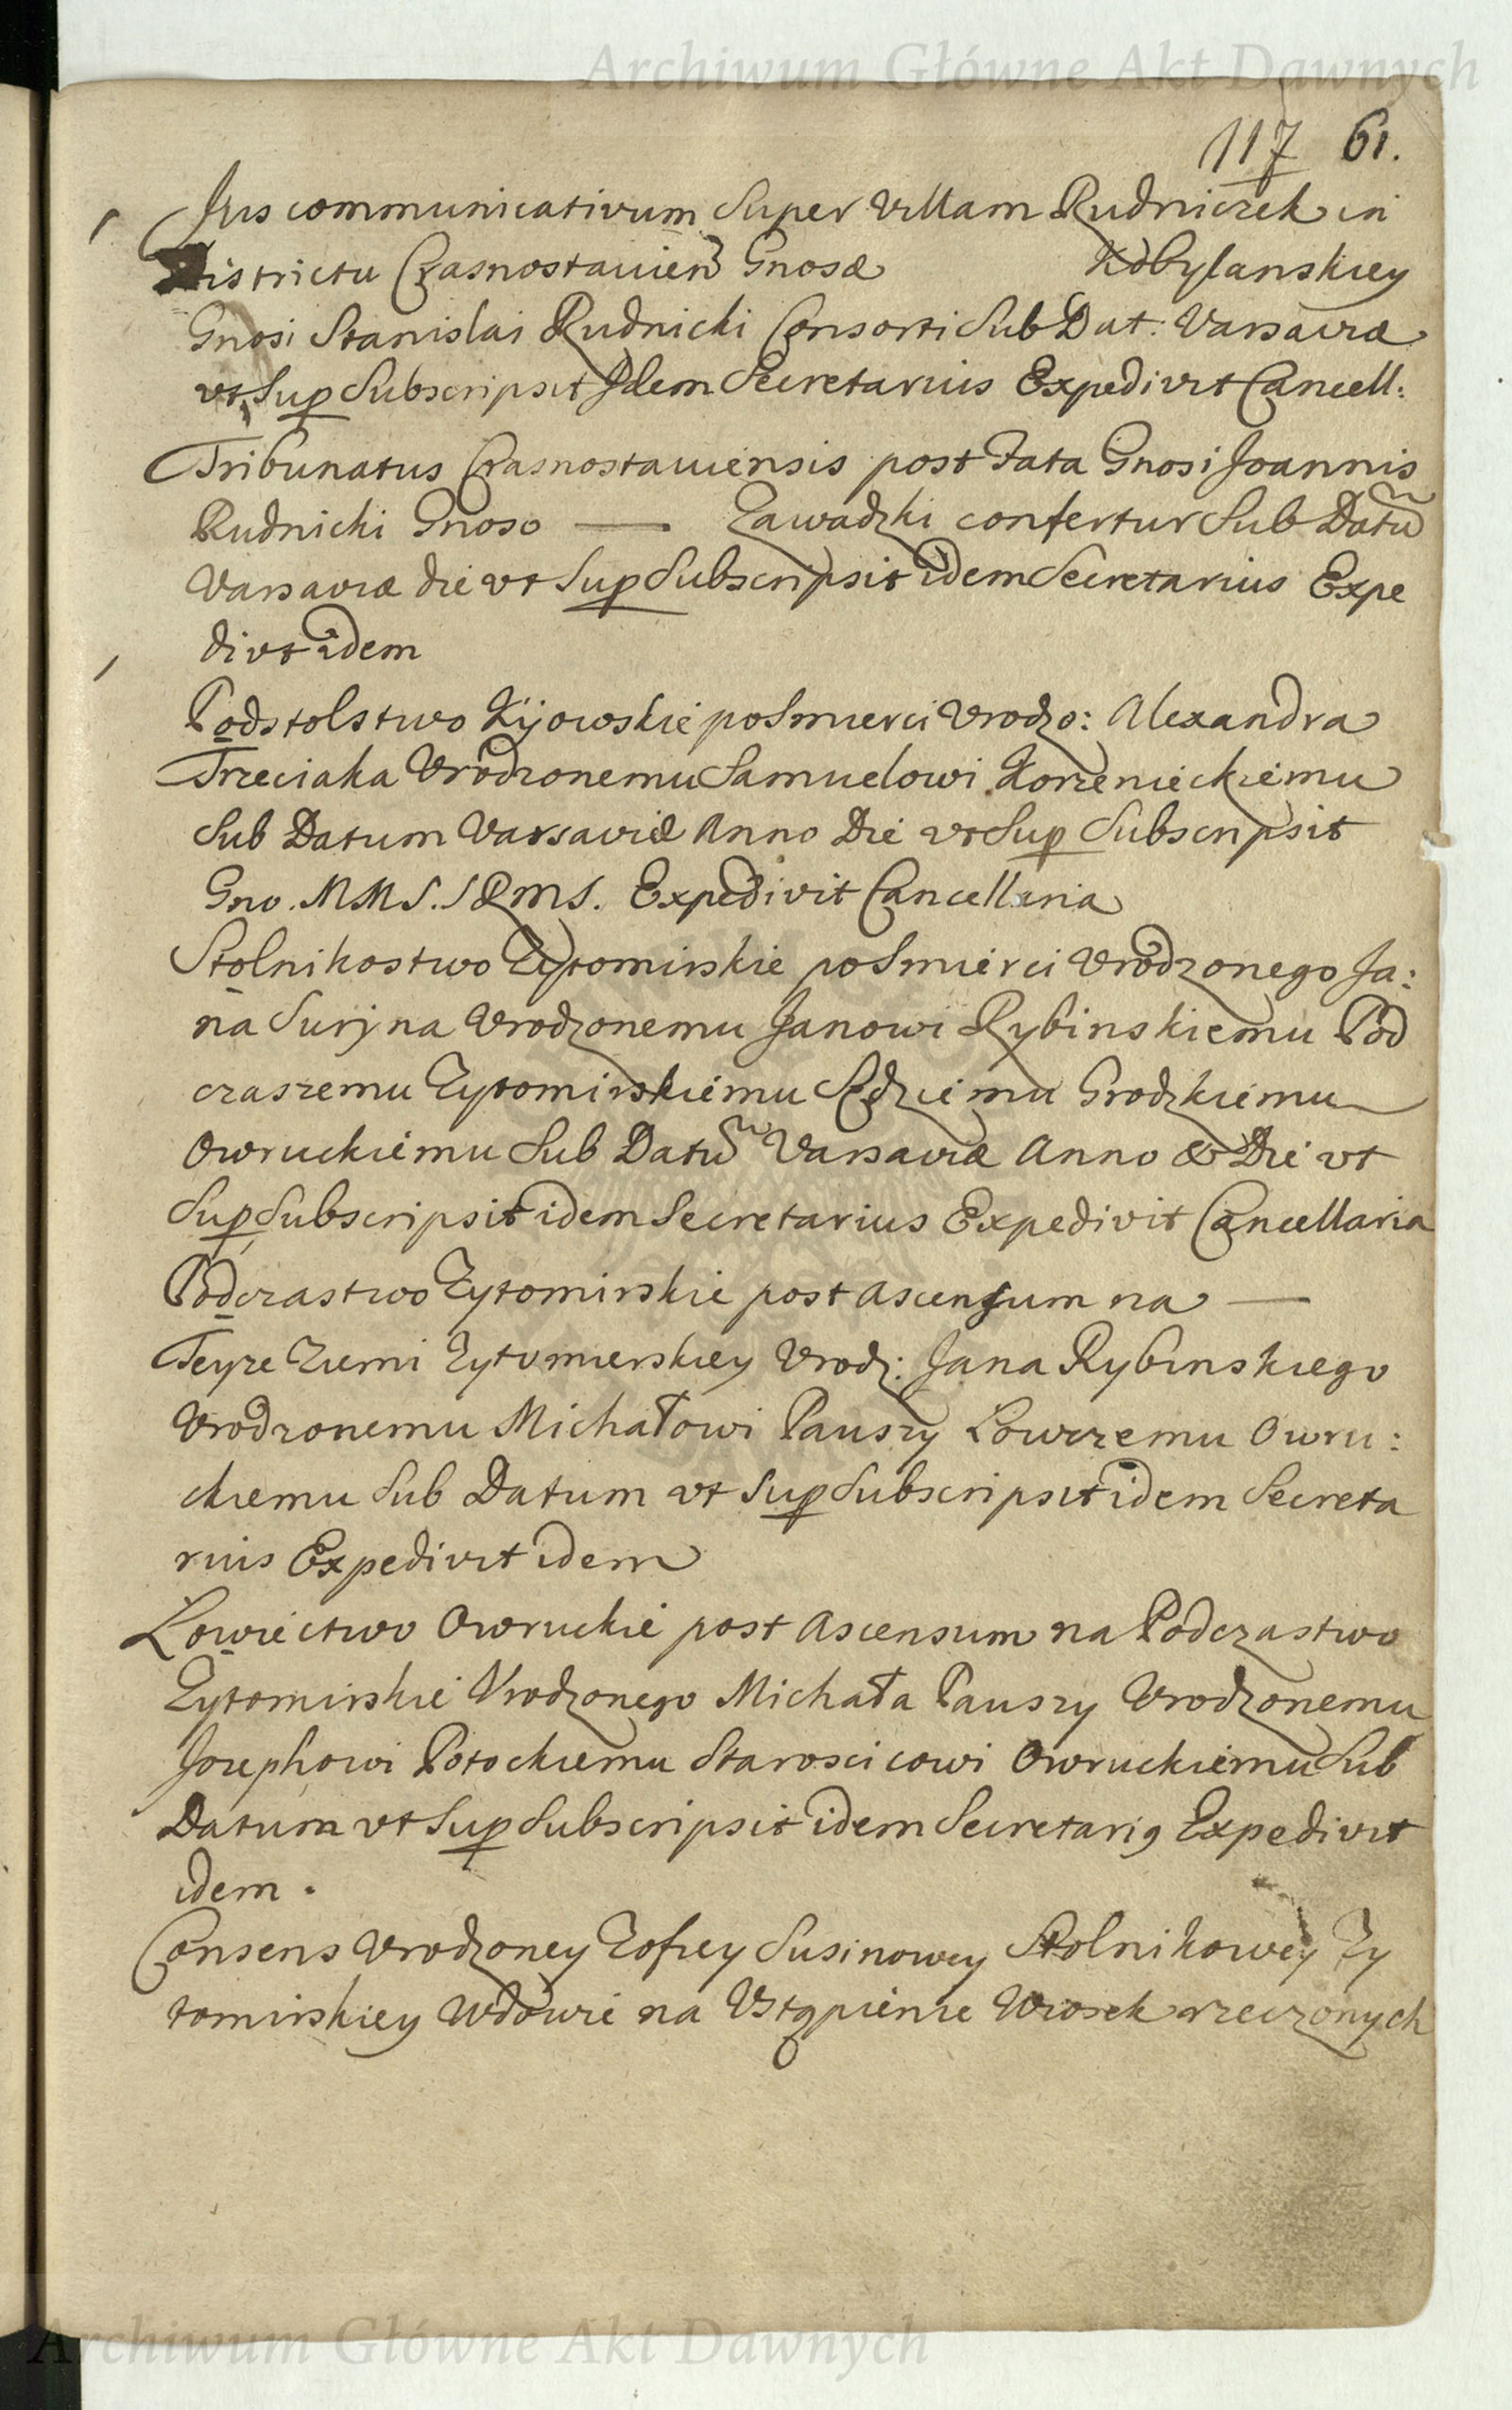 Archiwum Główne Akt Dawnych
117 61.
Jus communicativum Super Villam Rudniczek in
Districtu Crasnostavien Gnosæ Kobylanskiey
Gnosi Stanislai Rudnicki Consorti Sub Dat: Varsaviæ
vt Sup Subscripsit Idem Secretarius Expedivit Cancell:
Tribunatus Crasnostaviensis post Fata Gnosi Joannis
Rudnicki Gnoso — Zawadzki confertur Sub Datũ
Varsaviæ die vt Sup Subscripsit idem Secretarius Expe
divit idem
Podstolstwo Kijowskie po Smierci Vrodzo: Alexandra
Trzeciaka Vrodzonemu Samuelowi Korzenieckiemu
Sub Datum Varsaviæ Anno Die vt Sup Subscripsit
Gno. M M S. S R M S. Expedivit Cancellaria
Stolnikostwo Zytomirskie po Smierci Vrodzonego Ja:
na Surjna Vrodzonemu Janowi Rybinskiemu Pod
czaszemu Zytomirskiemu Sędziemu Grodzkiemu
Owruckiemu Sub Datũ Varsaviæ Anno & Die vt
Sup Subscripsit idem Secretarius Expedivit Cancellaria
Podczastwo Zytomirskie post Ascensum na —
Teyze Ziemi Zytomierskiey Vrodz: Jana Rybinskiego
Vrodzonemu Michałowi Pauszy Łowczemu Owru:
ckiemu Sub Datum vt Sup Subscripsit idem Secreta
rius Expedivit idem
Łowiectwo Owruckie post Ascensum na Podczastwo
Zytomirskie Vrodzonego Michała Pauszy Vrodzonemu
Jozephowi Potockiemu Staroscicowi Owruckiemu Sub
Datum vt Sup Subscripsit idem Secretari9 Expedivit
idem.
Consens Vrodzoney Zofiey Susinowey Stolnikowey Zy
tomirskiey Wdowie na Vstąpienie Wiosek rzeczonych
Archiwum Główne Akt Dawnych